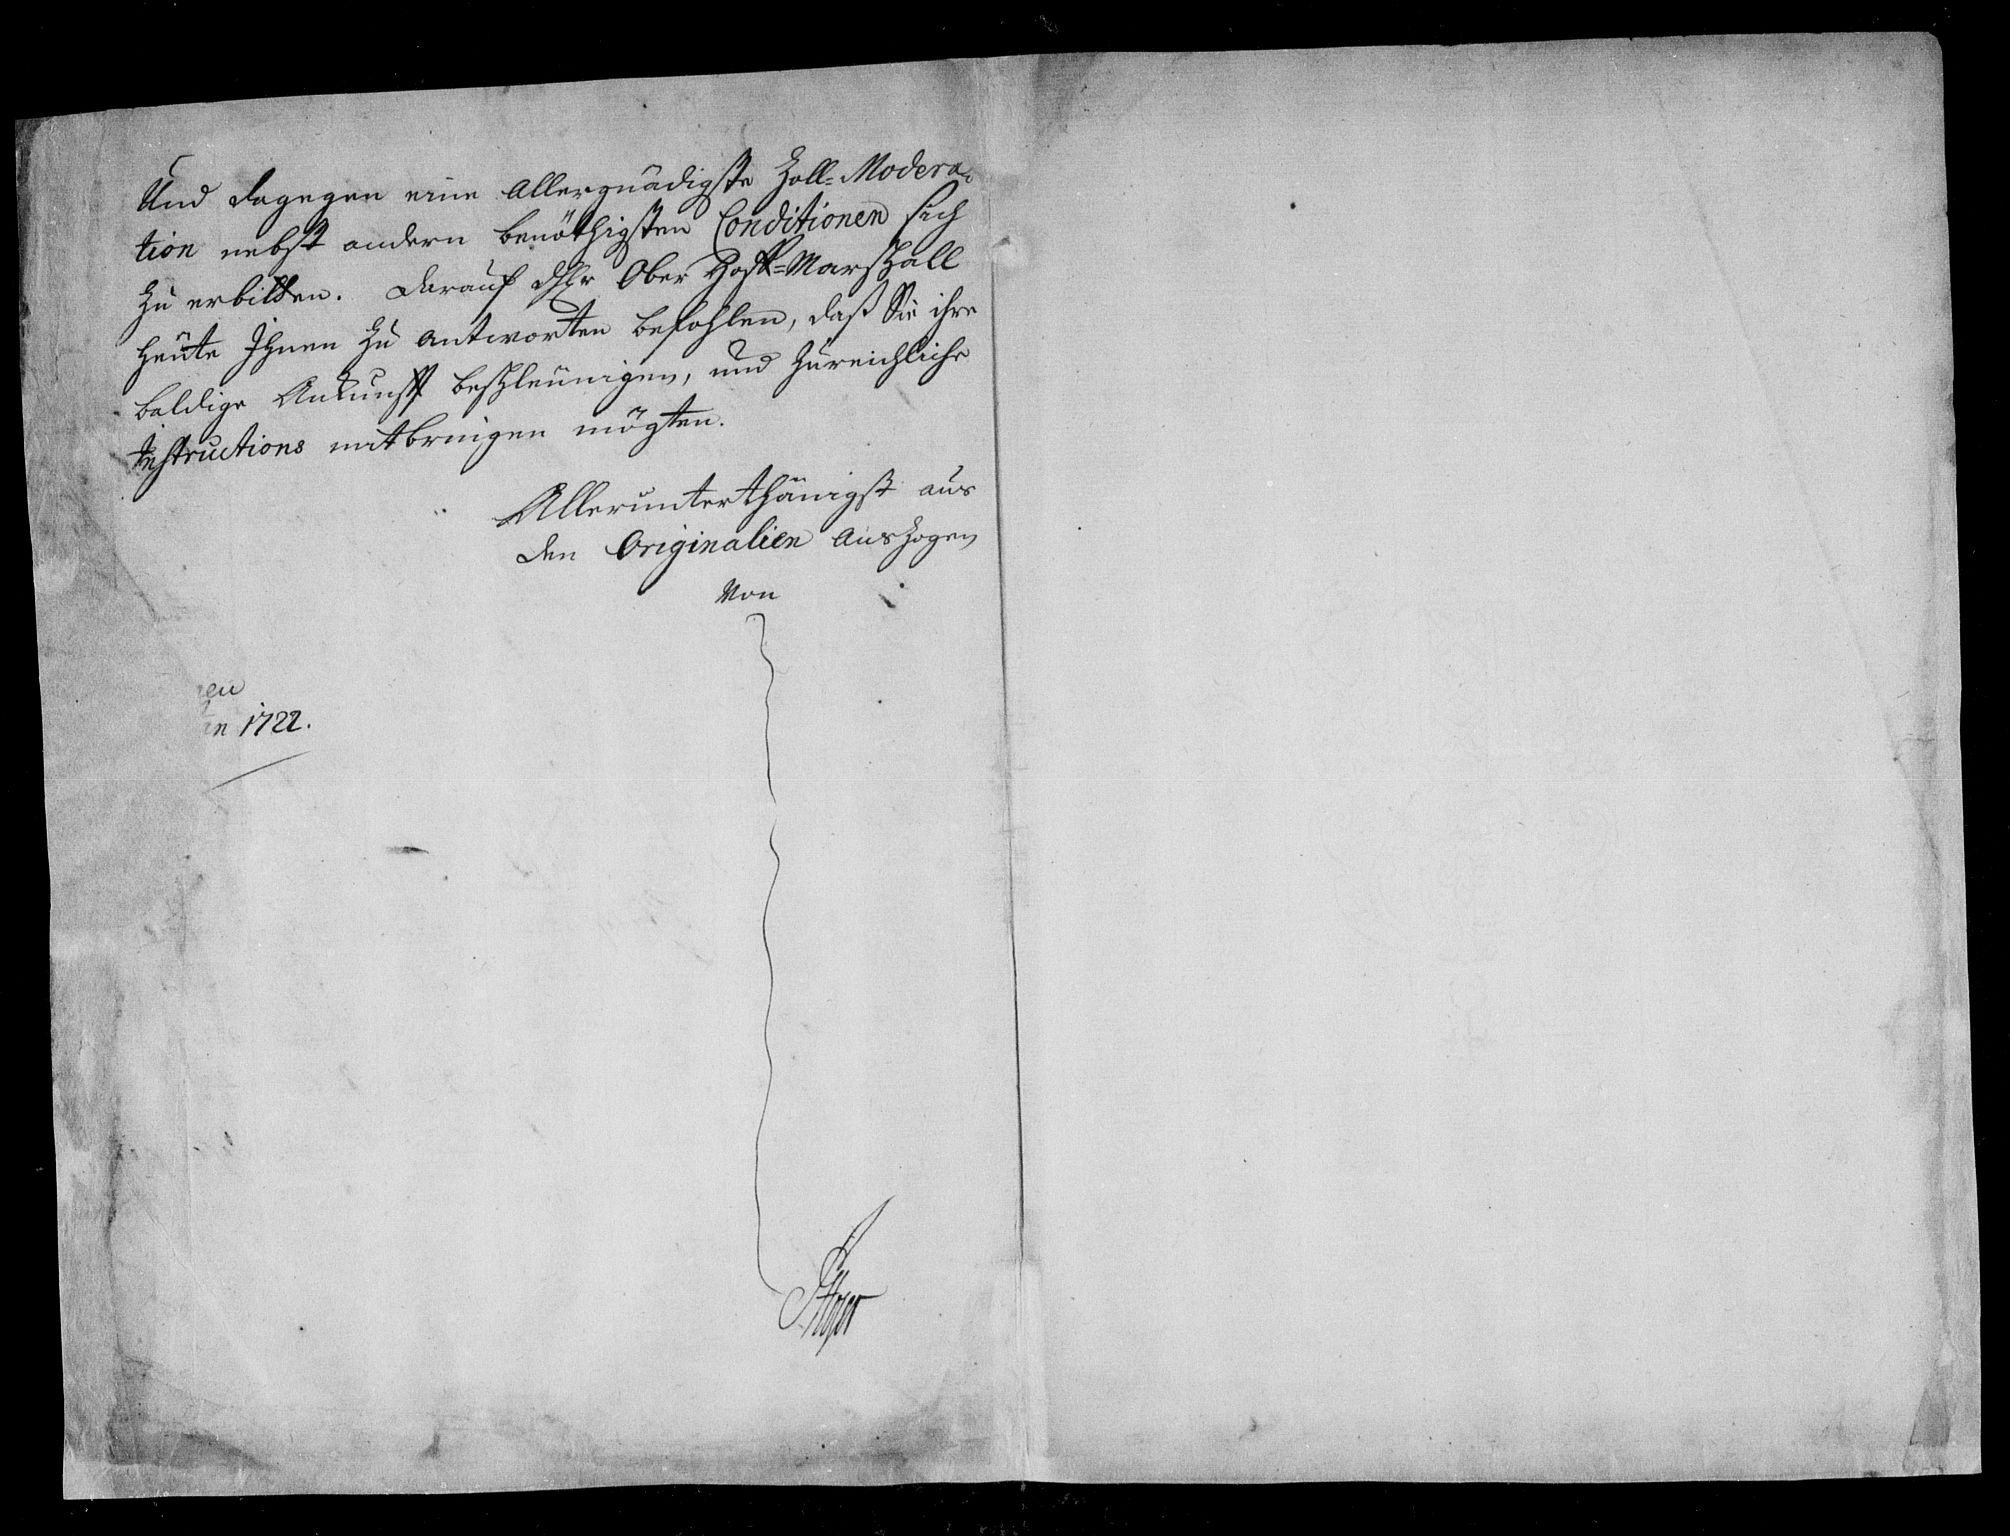 Und dagegen eine Allergnädigste Zoll-Modera-
tion nebst andern benöthigsten Conditionen sich
zu erbitten. Darauf Ober Hoff-Marschall
heüte Ihnen zu antworten befohlen, daß Sie ihre
baldige Ankunfft beschleünigen, und zureichliche
Instructions mitbringen mögten.
Allerunterthänigst aus
den Originalien auszogen
von
1722.